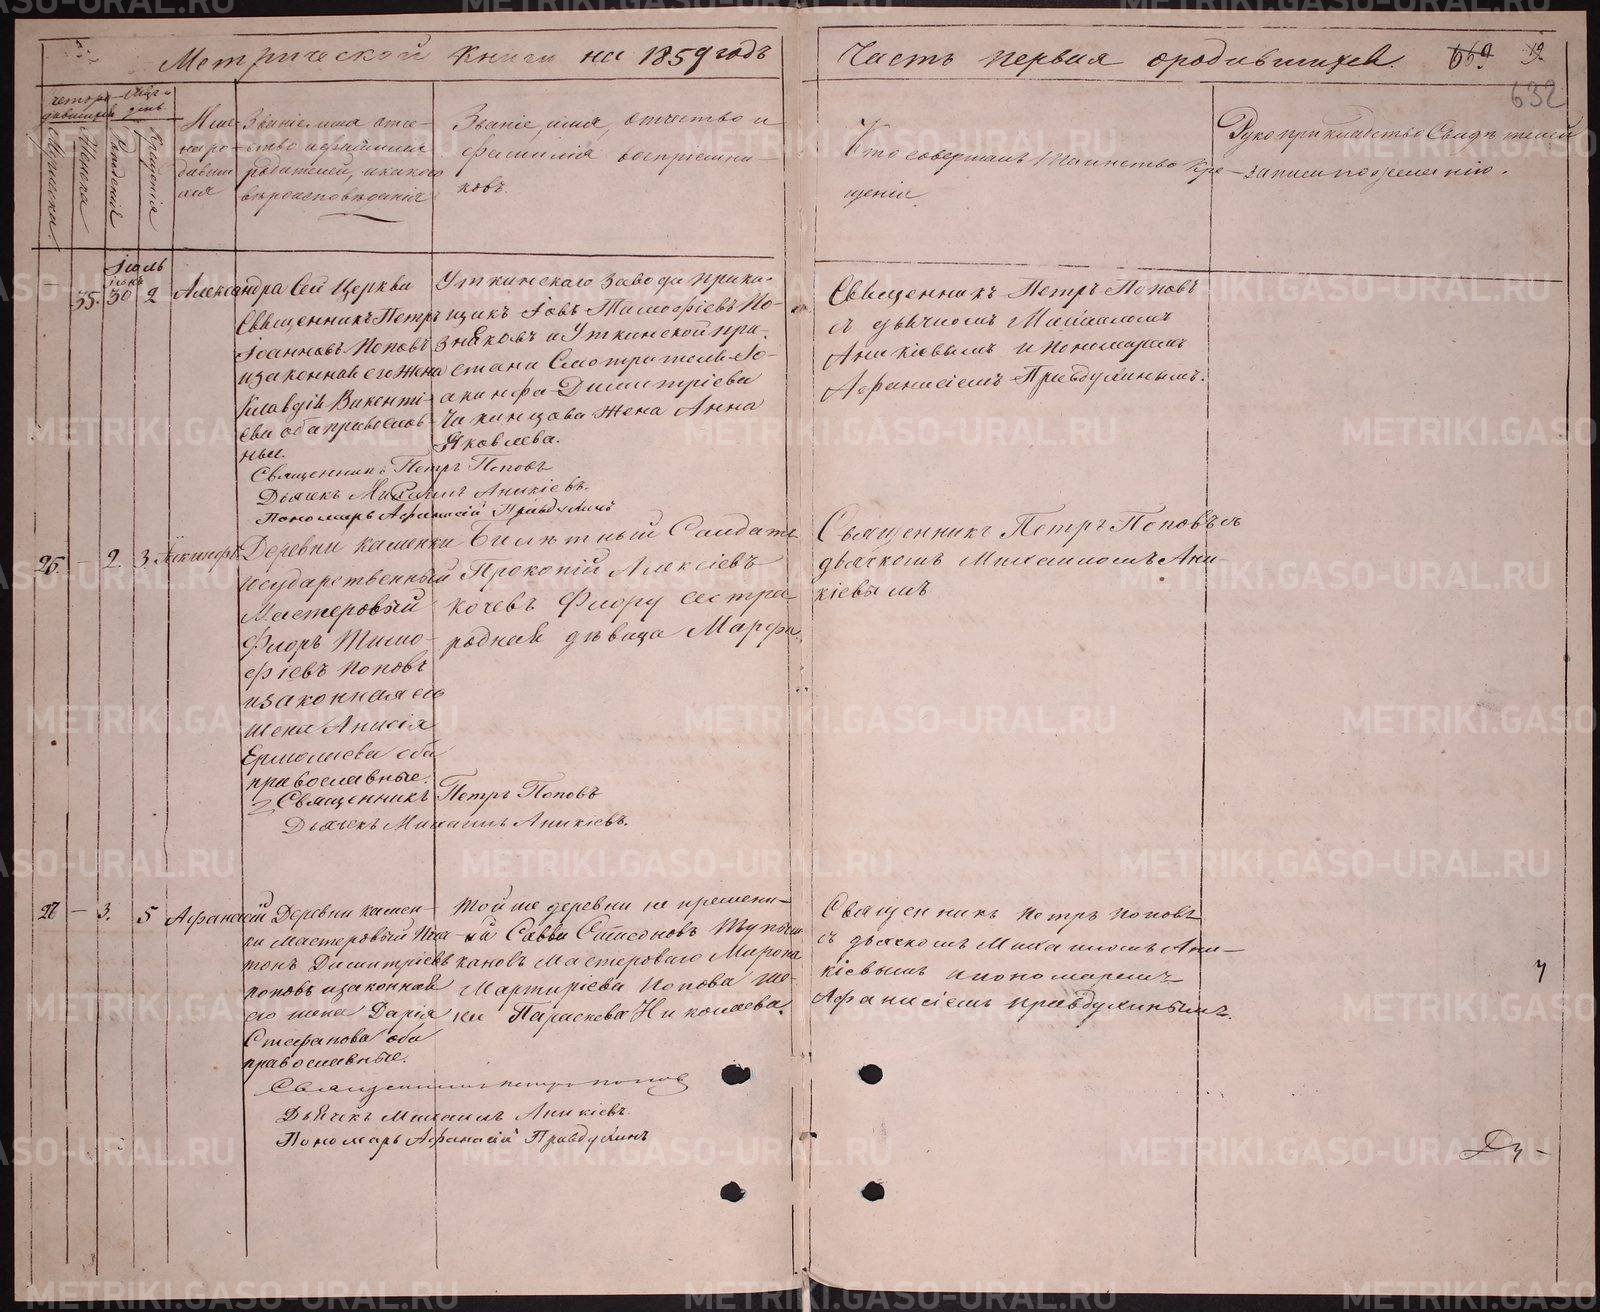 Метрической книги на 1859 годъ
Часть первая о родившихся.
669. 19.
632
Счетъ родившихся
Мѣсяцъ и день
Мужеска.
Женска
Рожденія
Крещенія
Имена родившихся
Званіе, имя, отчество и фамилія родителей, и какого вѣроисповѣданія
Званіе, имя, отчество и фамилія воспріемниковъ.
Кто совершалъ таинство крещенія
Рукоприкладство свидѣтелей записи по желанію.
Іюль
35. 30 2 Александра
Сей Церкви
Священникъ Петръ
Іоанновъ Поповъ
и законная его жена
Клавдія Викентіева
оба православные.
Уткинскаго завода прикащикъ
Іовъ Тимофіевъ Позняковъ
и Уткинской пристани
Смотрителя Іоакинфа
Димитріева
жена Анна
Яковлева.
Священникъ Петръ Поповъ
съ дьячкомъ Михаиломъ
Аникіевымъ и пономаремъ
Афанасіемъ Правдухинымъ.
Священникъ Петръ Поповъ
Дьячекъ Михаилъ Аникіевъ.
Пономарь Афанасій Правдухинъ
26. - 2. 3 Іакинфъ
Деревни каменки
государственный
Мастеровый
Флоръ Тимофіевъ
Поповъ
и законная его
жена Анисія
Ермолаева оба
православные.
Билетный Солдатъ
Прокопій Алексіевъ
кочевъ Флору сестра
родная дѣвица Марфа.
Священникъ Петръ Поповъ съ
дьячкомъ Михаиломъ Аникіевымъ
Священникъ Петръ Поповъ
Дьячекъ Михаилъ Аникіевъ.
27 - 3. 5 Афанасій
Деревни каменки
мастеровый Платонъ
Димитріевъ
поповъ и законная
его жена Дарія
Стефанова оба
православные.
Той же деревни
Савва Симеоновъ
мастероваго Мирона
Мартиріева Попова жена
Параскева Николаева.
Священникъ Петръ Поповъ
съ дьячкомъ Михаиломъ Аникіевымъ
и пономаремъ
Афанасіемъ Правдухинымъ.
Священникъ Петръ Поповъ
Дьячекъ Михаилъ Аникіевъ
Пономарь Афанасій Правдухинъ
METRIKI.GASO-URAL.RU